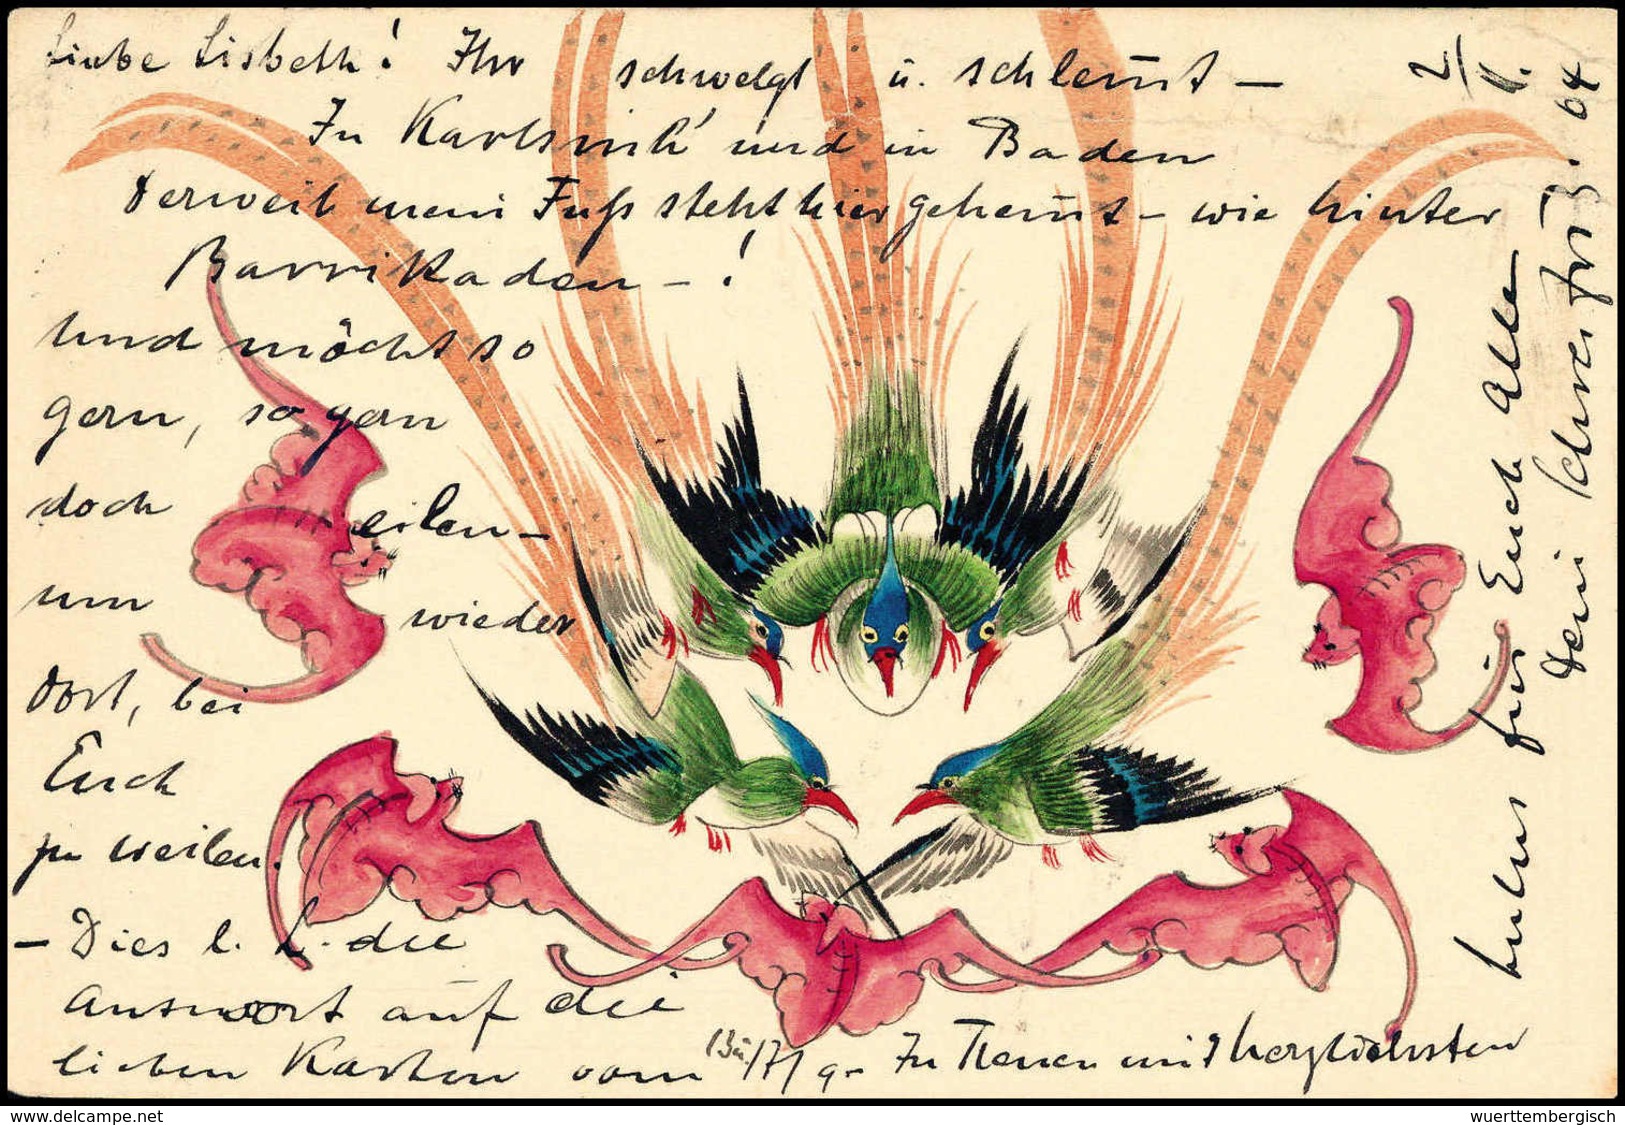 Liebe Lisbeth! Ihr schwelgt u. schlemt –
In Karlsruh' und in Baden
Derweil mein Fuß steht hier gehemt – wie hinter
Barrikaden – !
Und möcht so
gern, so gern
doch eilen –
um wieder
dort, bei
Euch
zu weilen.
– Dies l. L. die
Antwort auf die
lieben Karten vom
In Treuen mit herzlichsten
für Euch Alle
Dein
2/II. 04
delcampe.net
wuerttembergisch